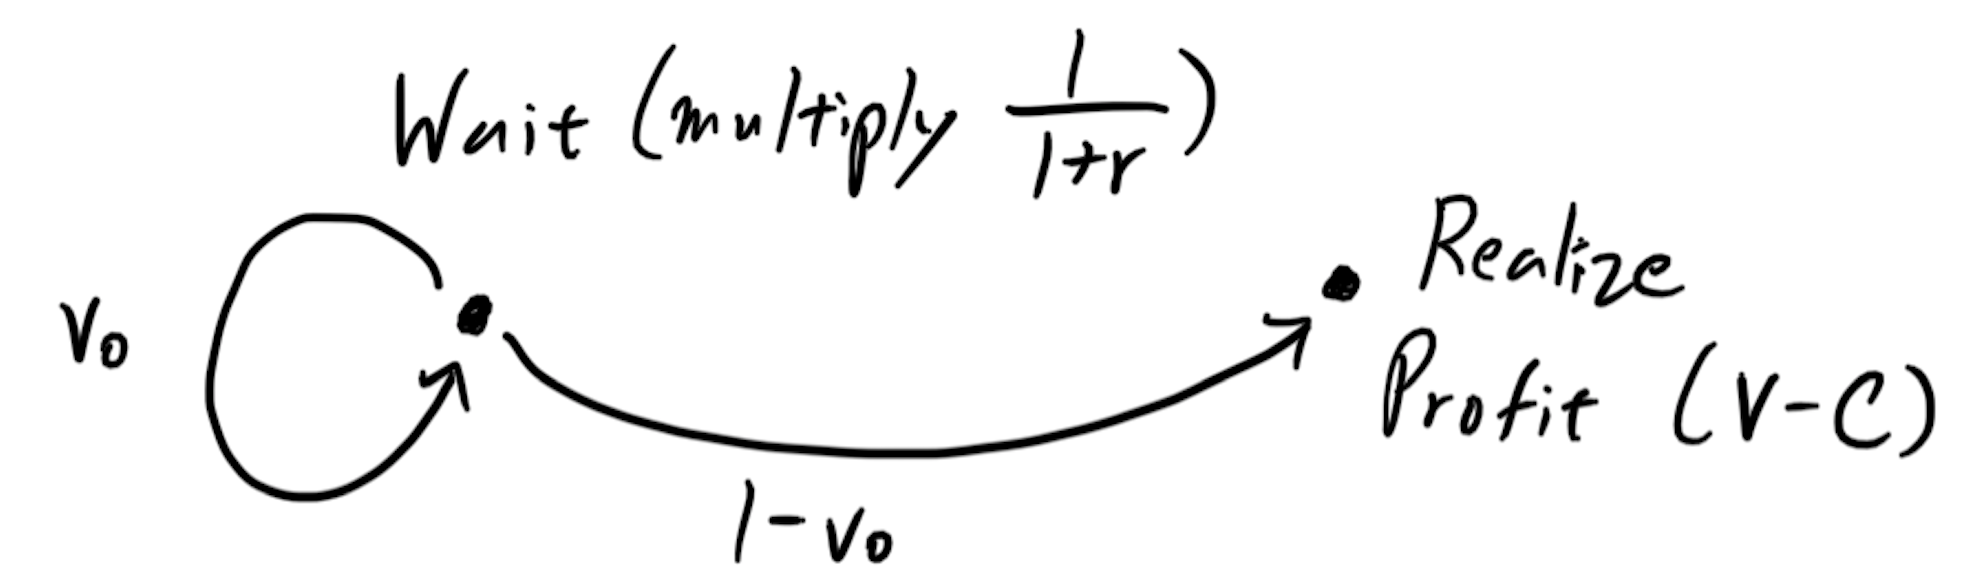 Wait (multiply 1/(1+r))
Realize
Profit (V-C)
V₀
1-V₀